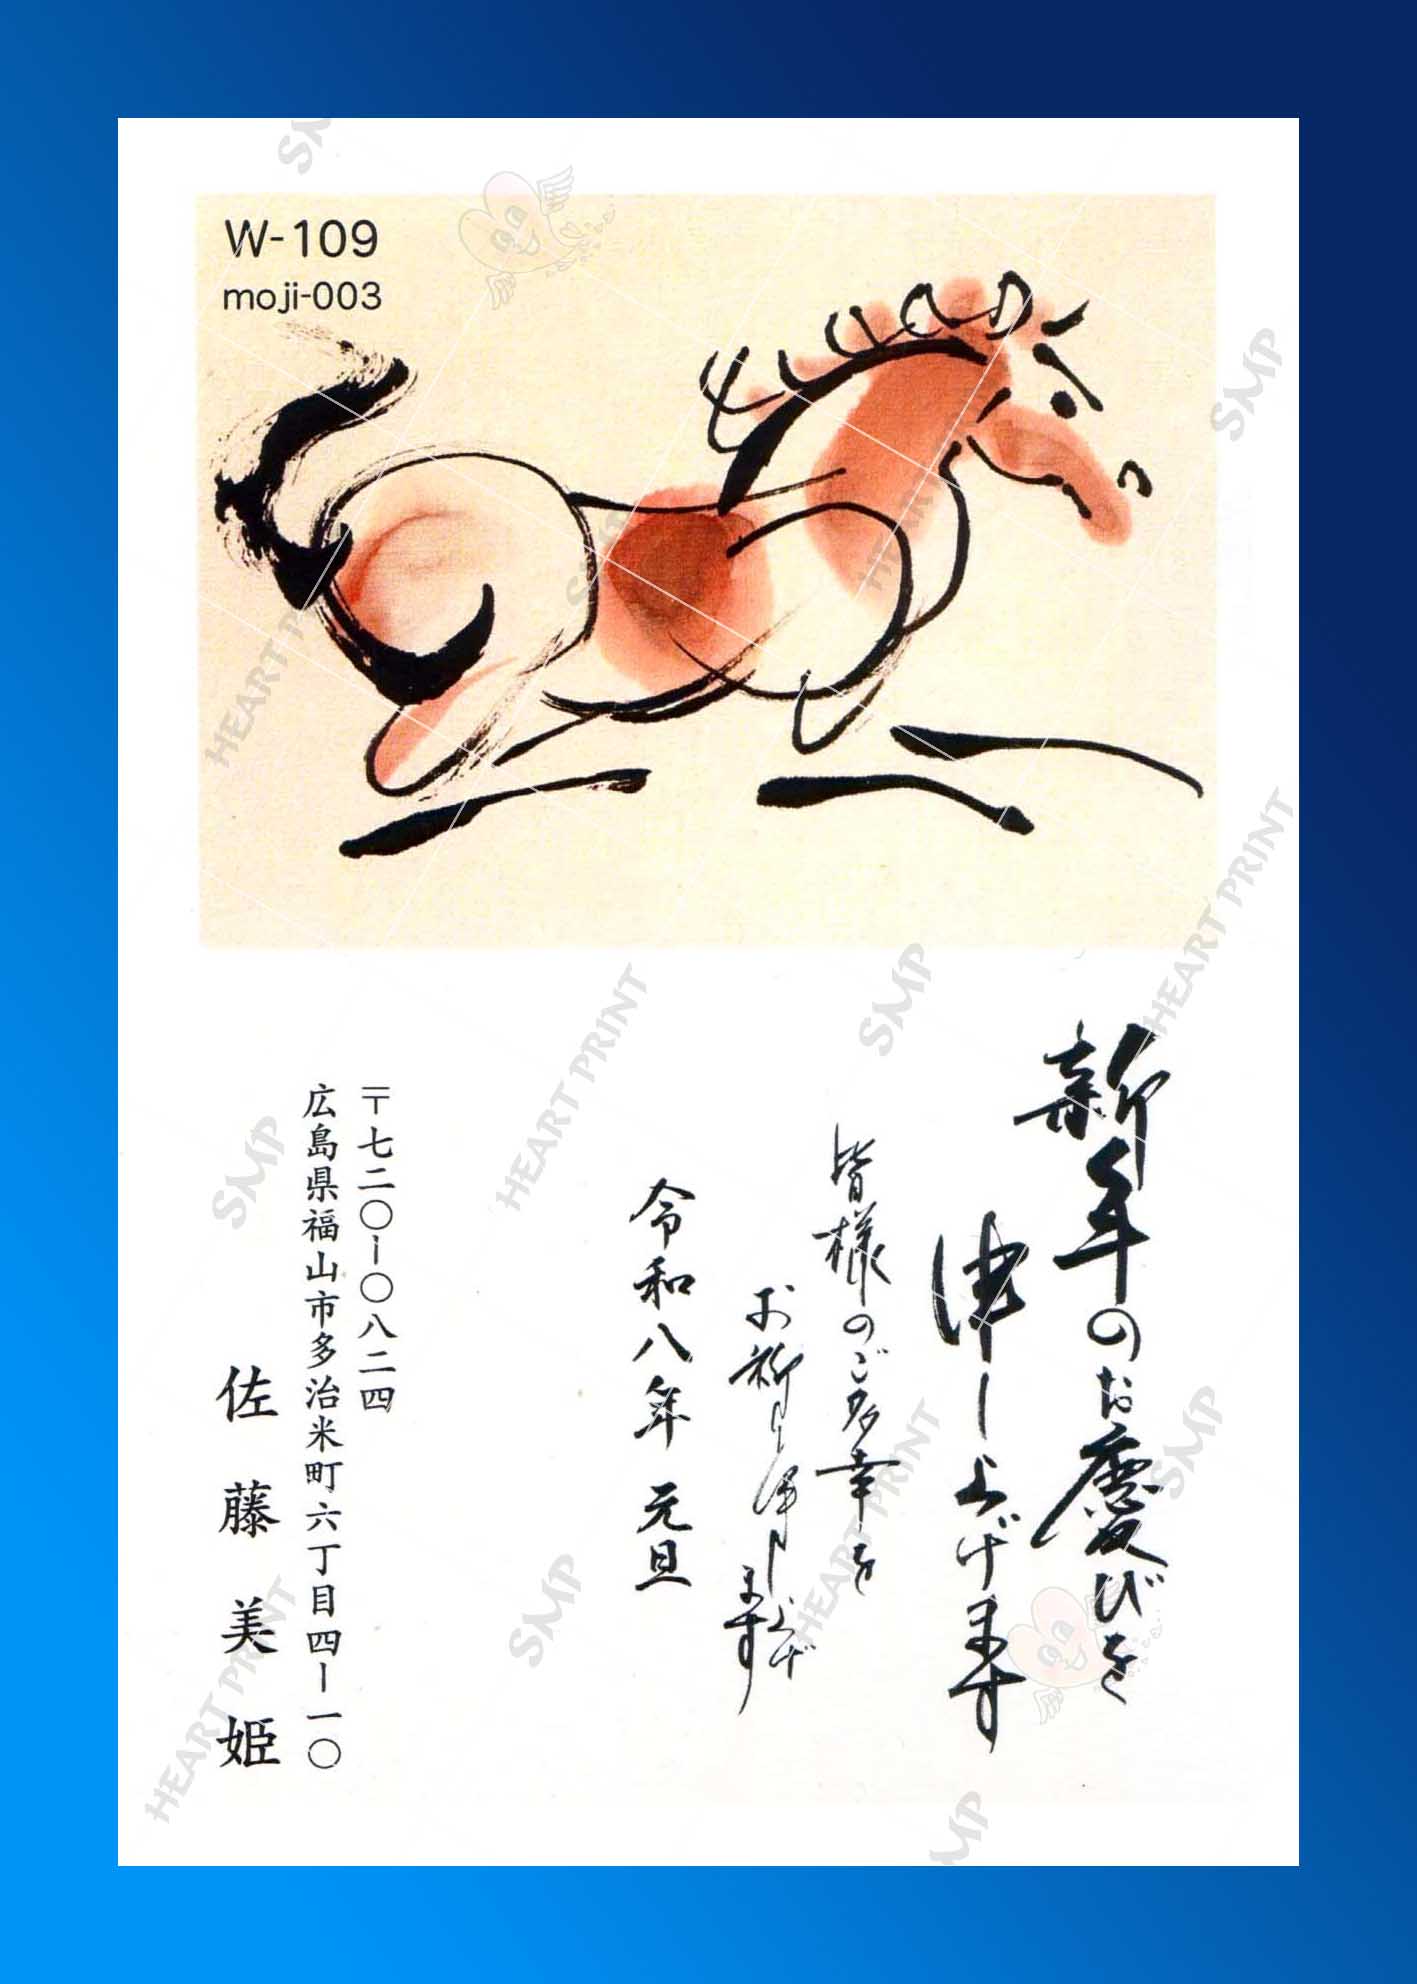 W-109
moji-003
新年のお慶びを
申し上げます
皆様のご多幸を
お祈り申し上げ
ます
令和八年 元旦
〒七二〇-〇八二四
広島県福山市多治米町六丁目四-一〇
佐藤美姫
SMP
HEART PRINT
SMP
HEART PRINT
HEART PRINT
SMP
HEART PRINT
SMP
SMP
SMP
HEART PRINT
SMP
HEART PRINT
SMP